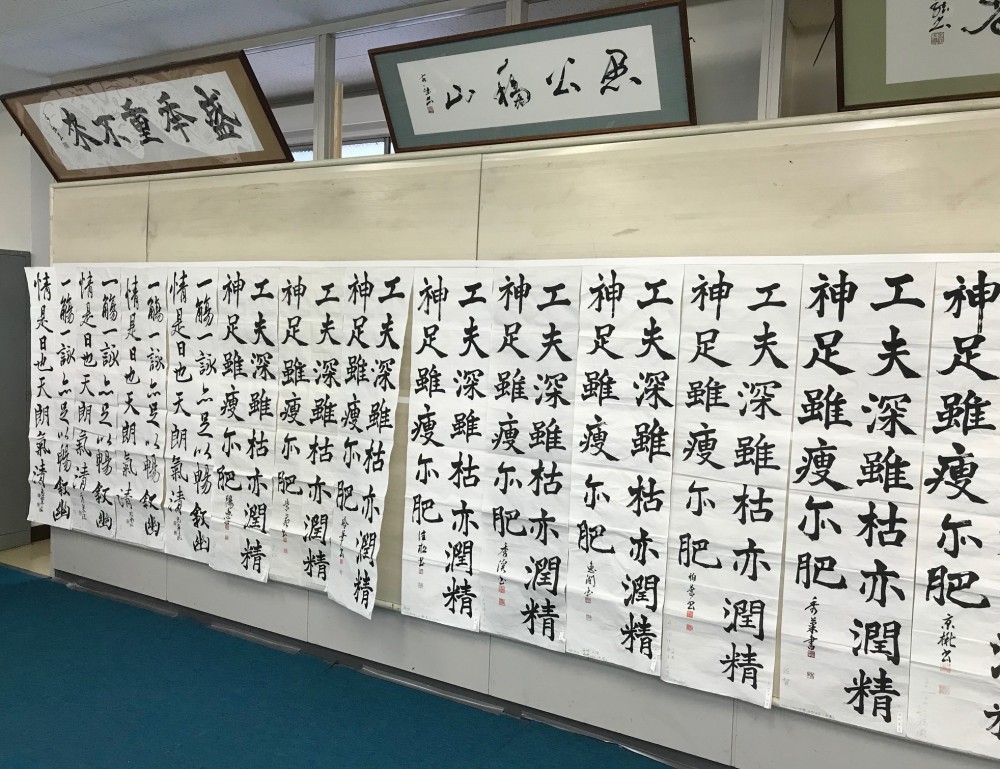 盛年重不来
神足雖瘦尓肥
工夫深雖枯亦潤精
神足雖瘦尓肥 秀葉書
工夫深雖枯亦潤精
神足雖瘦尓肥 柏葉書
工夫深雖枯亦潤精
神足雖瘦尓肥
工夫深雖枯亦潤精
神足雖瘦尓肥
工夫深雖枯亦潤精
神足雖瘦尓肥
工夫深雖枯亦潤精
神足雖瘦尓肥
工夫深雖枯亦潤精
神足雖瘦尓肥
工夫深雖枯亦潤精
神足雖瘦尓肥
一觴一詠亦足以暢叙幽
情是日也天朗氣清
一觴一詠亦足以暢叙幽
情是日也天朗氣清
一觴一詠亦足以暢叙幽
情是日也天朗氣清
一觴一詠亦足以暢叙幽
情是日也天朗氣清